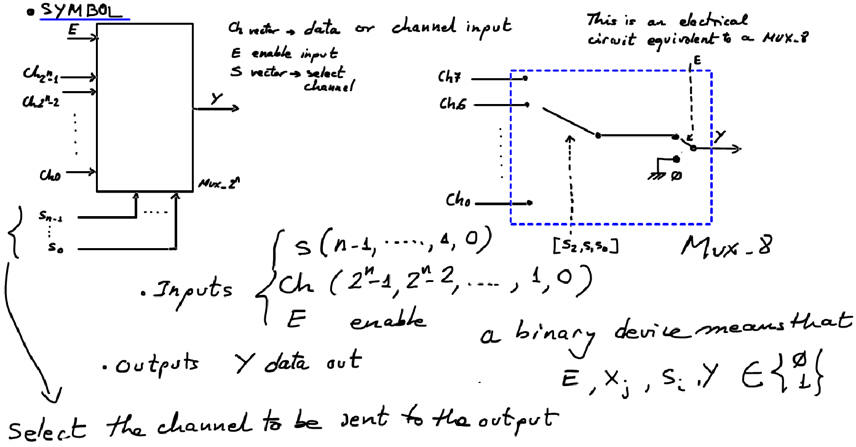 • SYMBOL
E
Ch2ⁿ-1
Ch2ⁿ-2
Ch0
Y
Mux_2ⁿ
Sn-1
S0
Ch vector → data or channel input
E enable input
S vector → select
channel
This is an electrical
circuit equivalent to a MUX_8
E
Ch7
Ch6
Ch0
Y
Ø
[S2,S1S0]
Mux_8
• Inputs
S (n-1, ....., 1, 0)
Ch (2ⁿ-1, 2ⁿ-2, ...., 1, 0)
E enable
• Outputs Y data out
a binary device means that
E, Xj, Si, Y ∈ {Ø
1}
Select the channel to be sent to the output